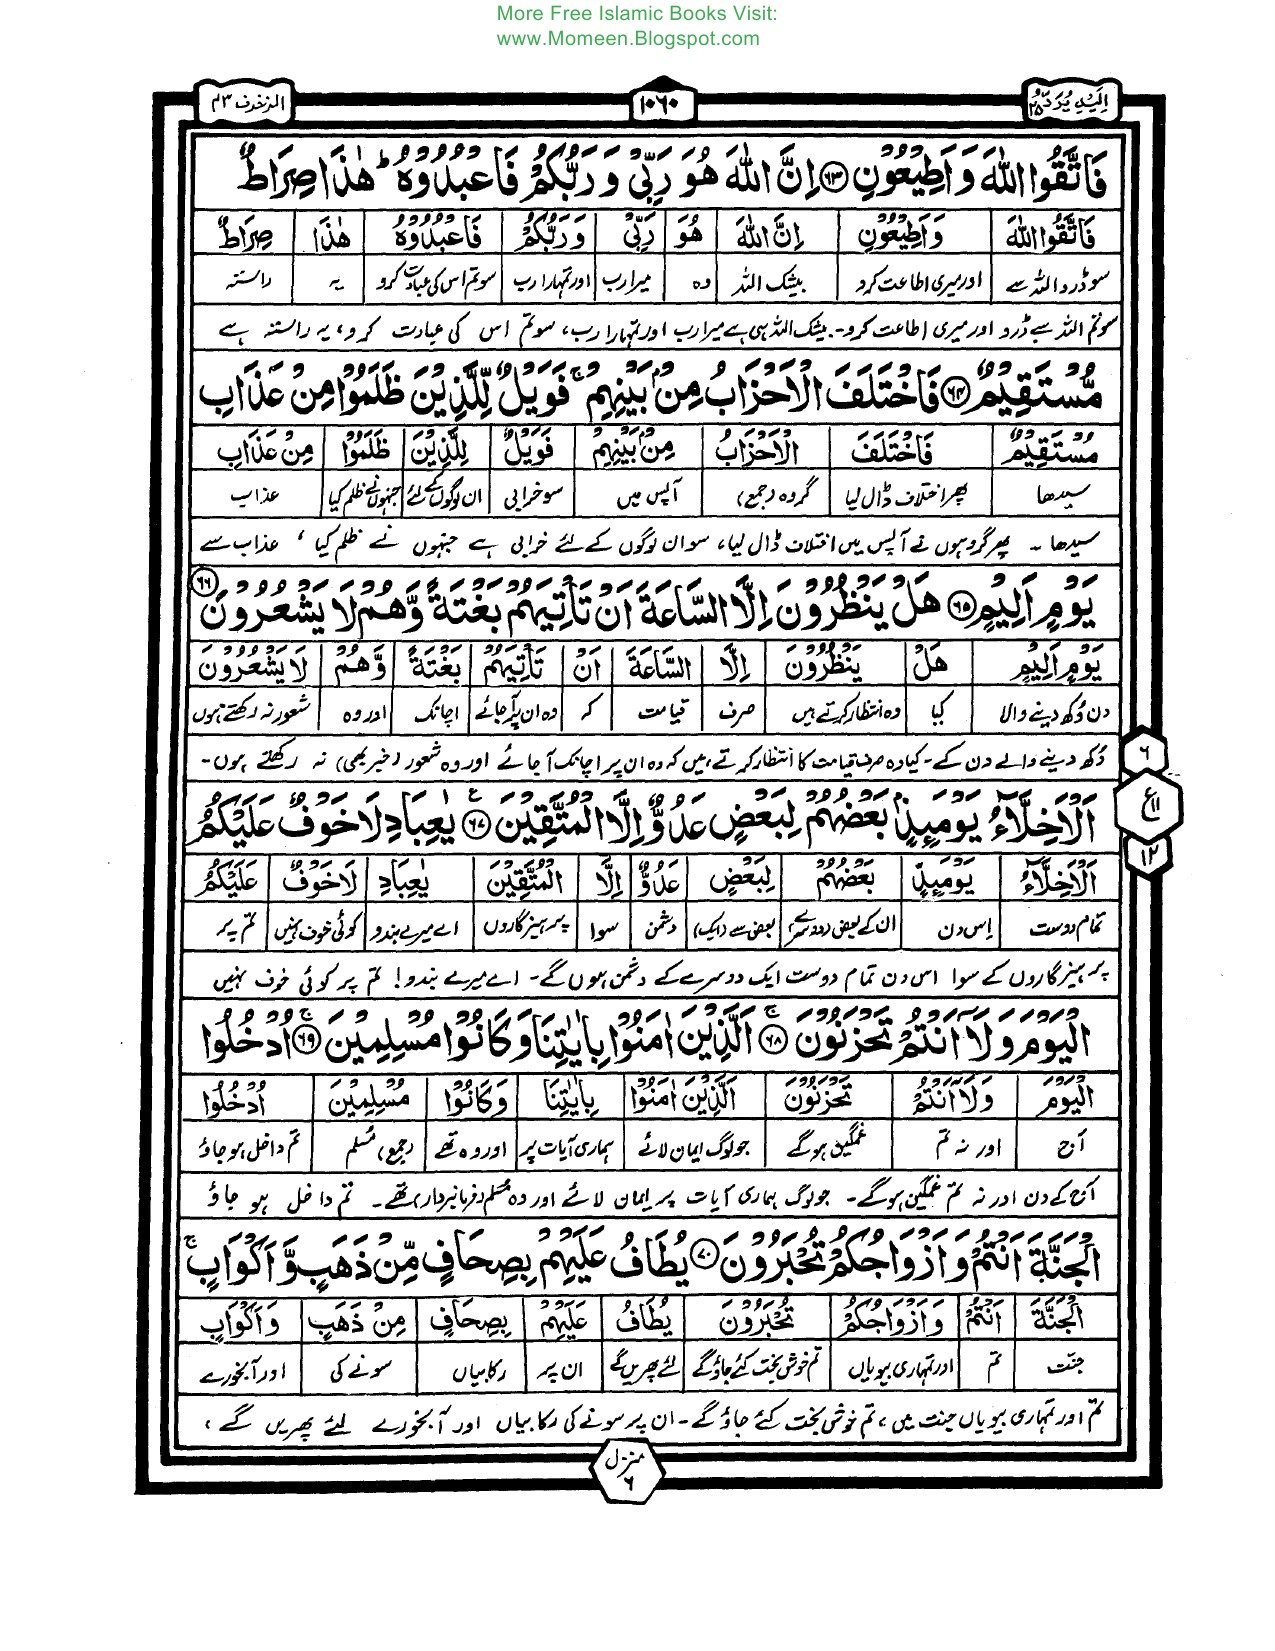 More Free Islamic Books Visit:
www.Momeen.Blogspot.com
اِلَيْهِ يُرَدُّ ۲۵
۱۰۶۰
الزخرف ۴۳
فَاتَّقُوا اللّٰهَ وَاَطِيْعُوْنِ ﴿۶۳﴾ اِنَّ اللّٰهَ هُوَ رَبِّيْ وَرَبُّكُمْ فَاعْبُدُوْهُ ؕ هٰذَا صِرَاطٌ
فَاتَّقُوا اللّٰهَ وَاَطِيْعُوْنِ اِنَّ اللّٰهَ هُوَ رَبِّيْ وَرَبُّكُمْ فَاعْبُدُوْهُ هٰذَا صِرَاطٌ
سو ڈرو اللہ سے اور میری اطاعت کرو بیشک اللہ وہ میرا رب اور تمہارا رب سو تم اس کی عبادت کرو یہ راستہ
سو تم اللہ سے ڈرو اور میری اطاعت کرو۔ بیشک اللہ ہی ہے میرا رب اور تمہارا رب، سو تم اس کی عبادت کرو، یہ راستہ ہے
مُّسْتَقِيْمٌ ﴿۶۴﴾ فَاخْتَلَفَ الْاَحْزَابُ مِنْۢ بَيْنِهِمْ ۚ فَوَيْلٌ لِّلَّذِيْنَ ظَلَمُوْا مِنْ عَذَابِ
مُسْتَقِيْمٌ فَاخْتَلَفَ الْاَحْزَابُ مِنْۢ بَيْنِهِمْ فَوَيْلٌ لِلَّذِيْنَ ظَلَمُوْا مِنْ عَذَابِ
سیدھا پھر اختلاف ڈال لیا گروہ (جمع) آپس میں سو خرابی ان لوگوں کے لئے جنہوں نے ظلم کیا عذاب
سیدھا۔ پھر گروہوں نے آپس میں اختلاف ڈال لیا، سو ان لوگوں کے لئے خرابی ہے جنہوں نے ظلم کیا، عذاب سے
يَوْمٍ اَلِيْمٍ ﴿۶۵﴾ هَلْ يَنْظُرُوْنَ اِلَّا السَّاعَةَ اَنْ تَاْتِيَهُمْ بَغْتَةً وَّهُمْ لَا يَشْعُرُوْنَ ﴿۶۶﴾
يَوْمٍ اَلِيْمٍ هَلْ يَنْظُرُوْنَ اِلَّا السَّاعَةَ اَنْ تَاْتِيَهُمْ بَغْتَةً وَّهُمْ لَا يَشْعُرُوْنَ
دن دُکھ دینے والا کیا وہ انتظار کرتے ہیں صرف قیامت کہ وہ ان پر آجائے اچانک اور وہ شعور نہ رکھتے ہوں
دُکھ دینے والے دن کے۔ کیا وہ صرف قیامت کا انتظار کرتے ہیں کہ وہ ان پر اچانک آ جائے اور وہ شعور (خبر بھی) نہ رکھتے ہوں۔
۶
ع ۱۱
۱۲
اَلْاَخِلَّآءُ يَوْمَئِذٍۭ بَعْضُهُمْ لِبَعْضٍ عَدُوٌّ اِلَّا الْمُتَّقِيْنَ ﴿۶۷﴾ يٰعِبَادِ لَا خَوْفٌ عَلَيْكُمُ
اَلْاَخِلَّآءُ يَوْمَئِذٍ بَعْضُهُمْ لِبَعْضٍ عَدُوٌّ اِلَّا الْمُتَّقِيْنَ يٰعِبَادِ لَا خَوْفٌ عَلَيْكُمُ
تمام دوست اس دن ان کے بعض (دوسرے) بعض سے (ایک) دشمن سوا پرہیزگاروں اے میرے بندو کوئی خوف نہیں تم پر
پرہیزگاروں کے سوا اس دن تمام دوست ایک دوسرے کے دشمن ہوں گے۔ اے میرے بندو! تم پر کوئی خوف نہیں
الْيَوْمَ وَلَآ اَنْتُمْ تَحْزَنُوْنَ ﴿۶۸﴾ اَلَّذِيْنَ اٰمَنُوْا بِاٰيٰتِنَا وَكَانُوْا مُسْلِمِيْنَ ﴿۶۹﴾ اُدْخُلُوا
الْيَوْمَ وَلَآ اَنْتُمْ تَحْزَنُوْنَ اَلَّذِيْنَ اٰمَنُوْا بِاٰيٰتِنَا وَكَانُوْا مُسْلِمِيْنَ اُدْخُلُوا
آج اور نہ تم غمگین ہو گے جو لوگ ایمان لائے ہماری آیات پر اور وہ تھے (جمع) مُسلم تم داخل ہو جاؤ
آج کے دن اور نہ تم غمگین ہو گے۔ جو لوگ ہماری آیات پر ایمان لائے اور وہ مُسلم (فرمانبردار) تھے۔ تم داخل ہو جاؤ
الْجَنَّةَ اَنْتُمْ وَاَزْوَاجُكُمْ تُحْبَرُوْنَ ﴿۷۰﴾ يُطَافُ عَلَيْهِمْ بِصِحَافٍ مِّنْ ذَهَبٍ وَّاَكْوَابٍ ۚ
الْجَنَّةَ اَنْتُمْ وَاَزْوَاجُكُمْ تُحْبَرُوْنَ يُطَافُ عَلَيْهِمْ بِصِحَافٍ مِنْ ذَهَبٍ وَاَكْوَابٍ
جنت تم اور تمہاری بیویاں تم خوش بخت کئے جاؤ گے لئے پھریں گے ان پر رکابیاں سونے کی اور آبخورے
تم اور تمہاری بیویاں جنت میں، تم خوش بخت کئے جاؤ گے۔ ان پر سونے کی رکابیاں اور آبخورے لئے پھریں گے،
منزل ۶